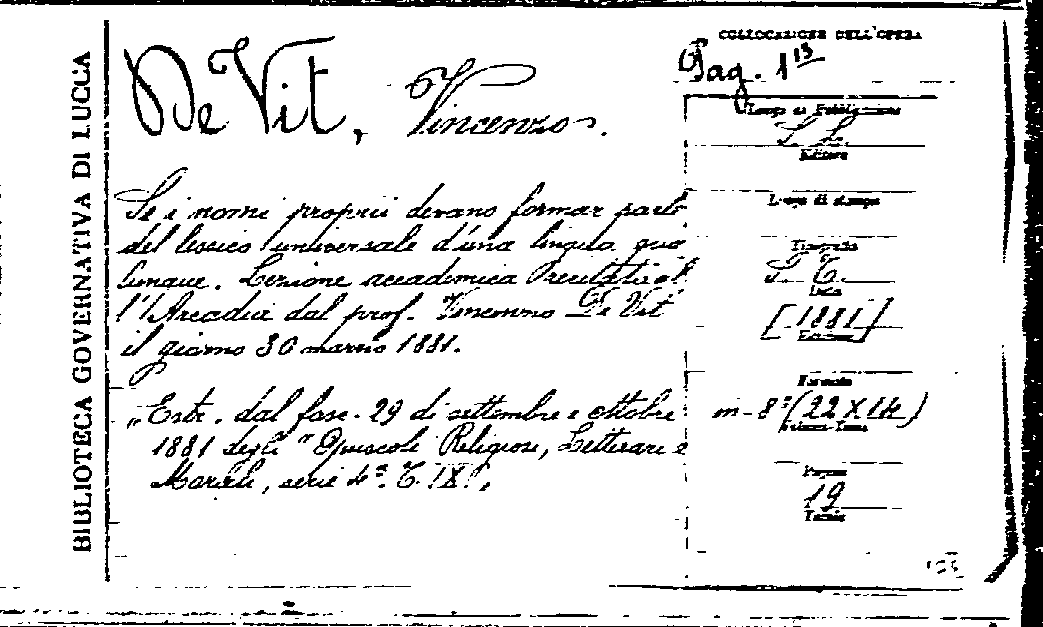 BIBLIOTECA GOVERNATIVA DI LUCCA
De Vit, Vincenzo.
Se i nomi proprii devano formar parte
del lessico universale d'una lingua qua
lunque. Lezione accademica recitata al
l'Arcadia dal prof. Vincenzo De Vit
il giorno 30 marzo 1881.
„Estr. dal fasc. 29 di settembre e ottobre
1881 degli "Opuscoli Religiosi, Letterari e
Morali, serie 4ª. T. IX".
COLLOCAZIONE DELL'OPERA
Pag. 1
Luogo di Pubblicazione
S. L.
Editore
Luogo di stampa
Tipografia
S. T.
Data
[1881]
Formato
m-8°(22X14)
Pagine
19